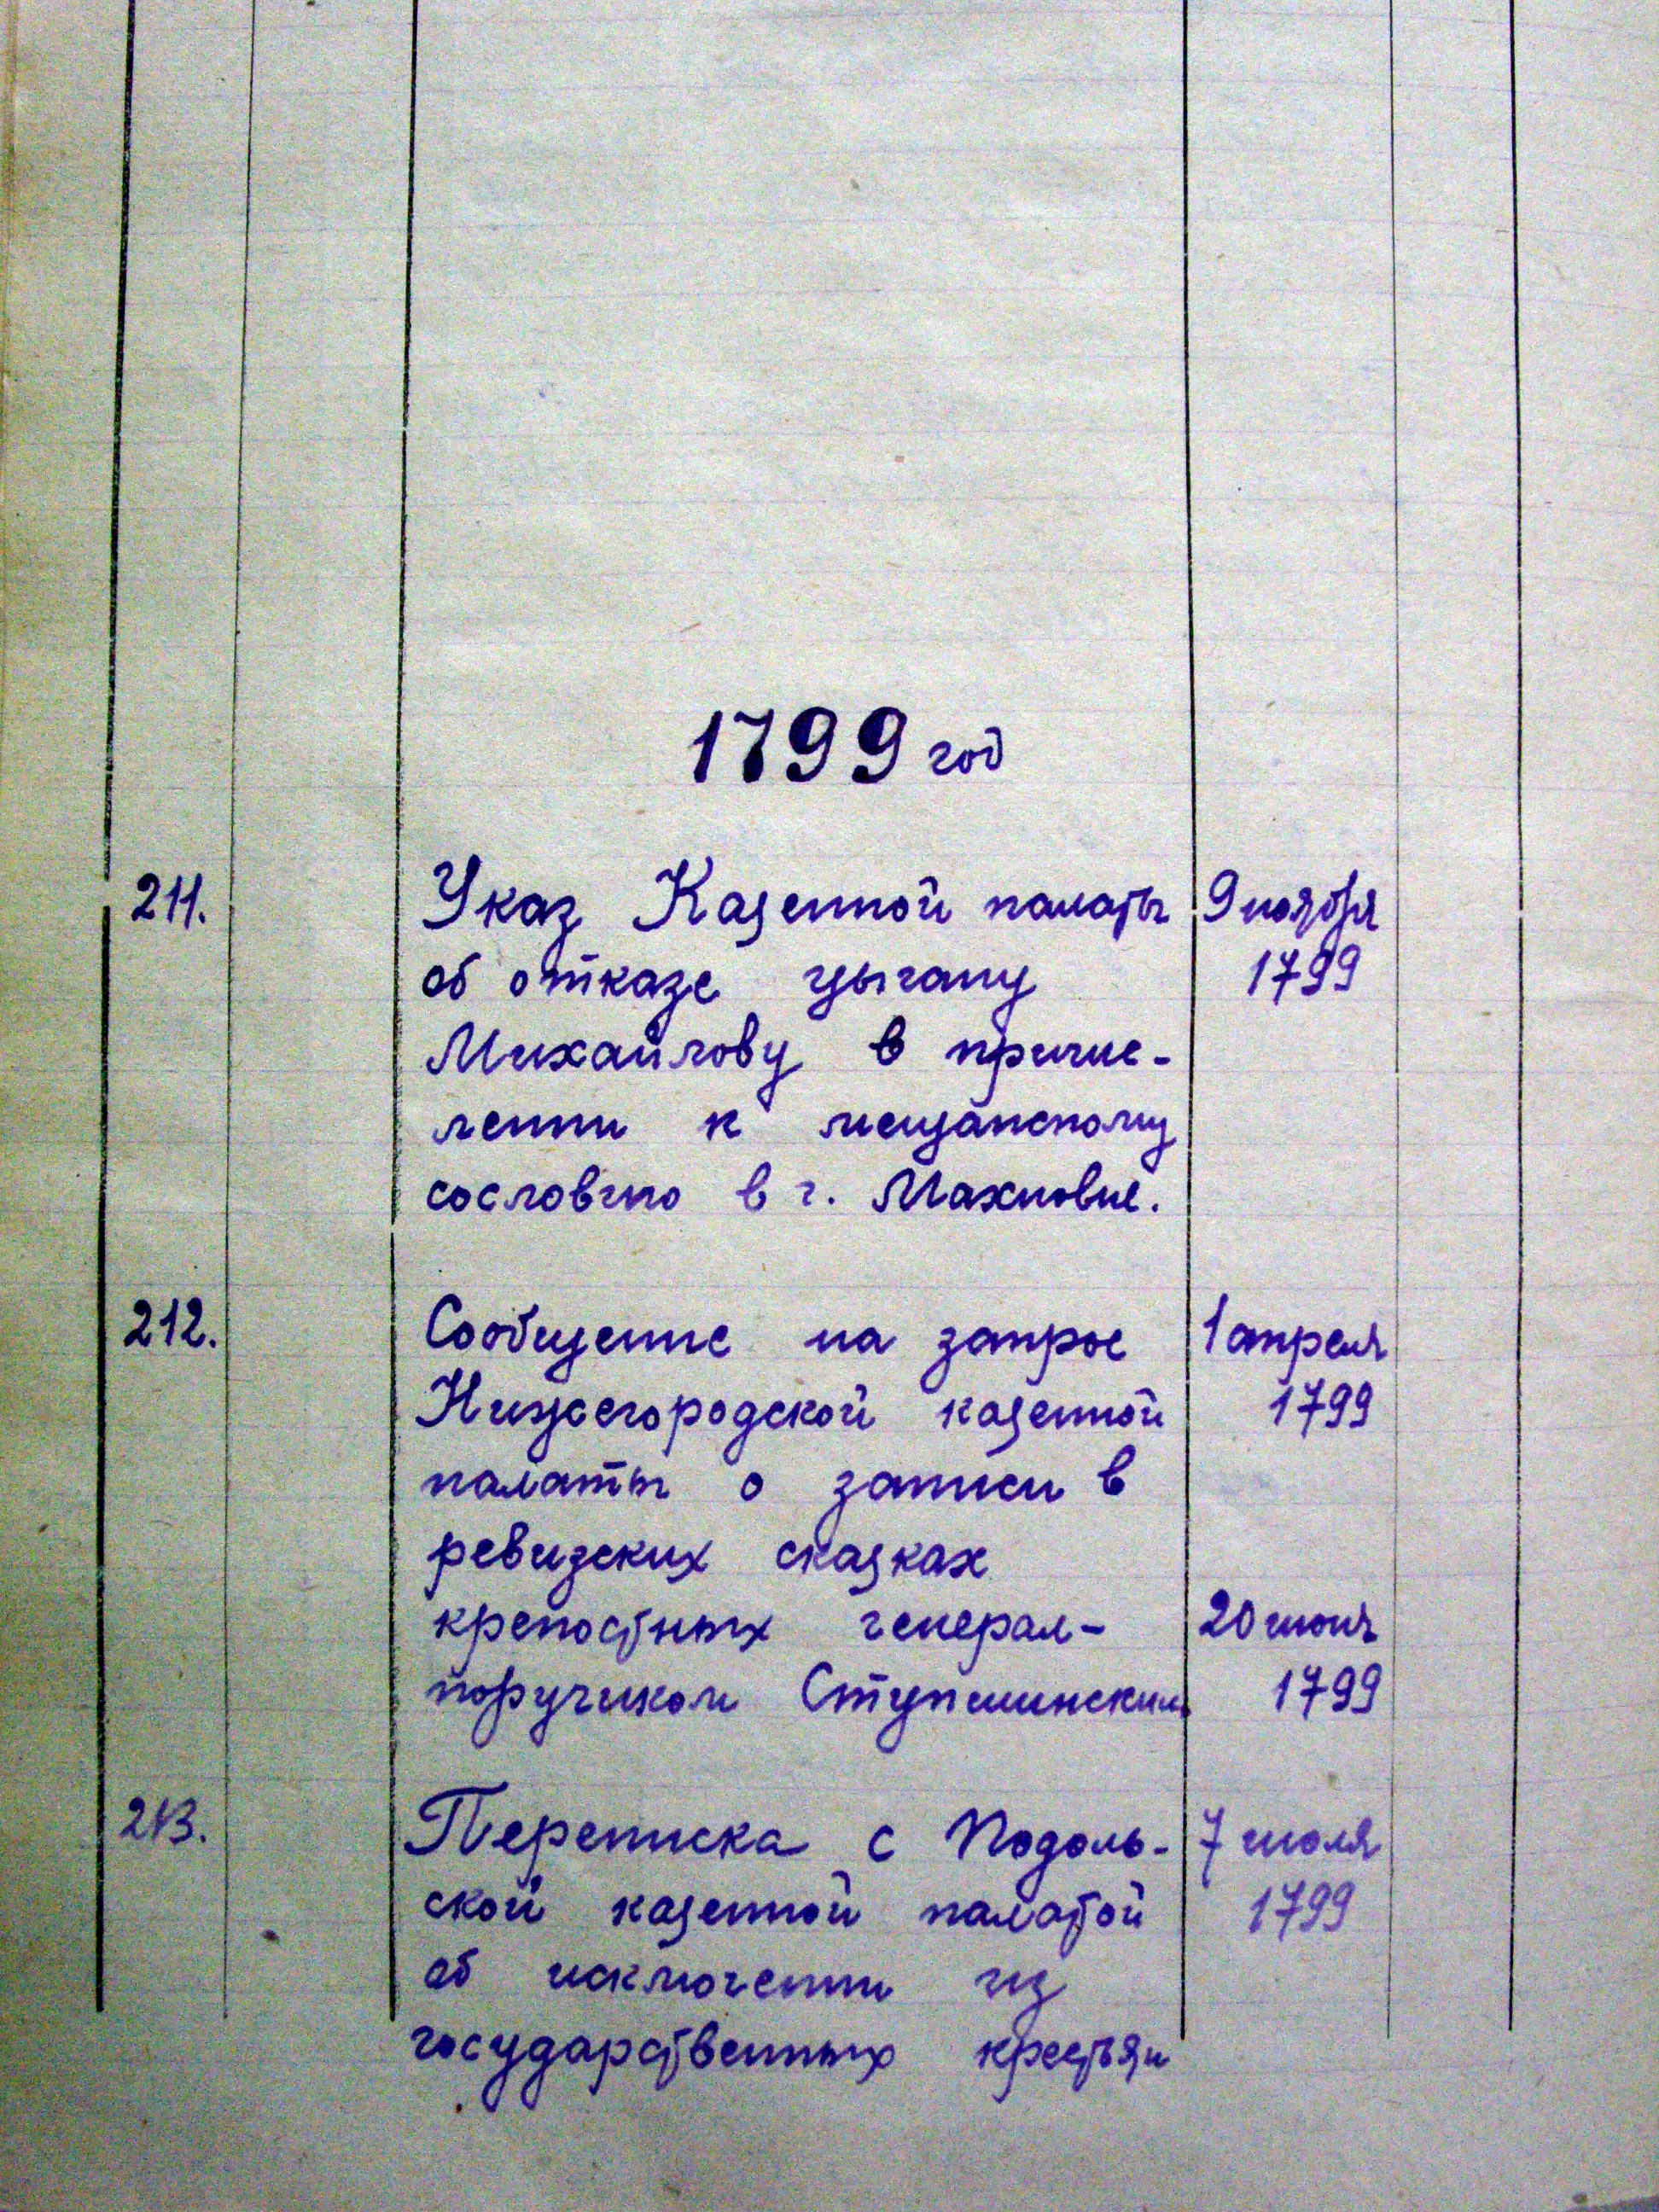 1799 год
211.
Указ Казенной палаты
9 ноября
об отказе цыгану
1799
Михайлову в причис-
лении к мещанскому
сословию в г. Махновке.
212.
Сообщение на запрос
1 апреля
Нижегородской казенной
1799
палаты о записи в
ревизских сказках
крепостных генерал-
20 июня
поручиком Ступишинским
1799
213.
Переписка с Подоль-
7 июля
ской казенной палатой
1799
об исключении из
государственных крестьян